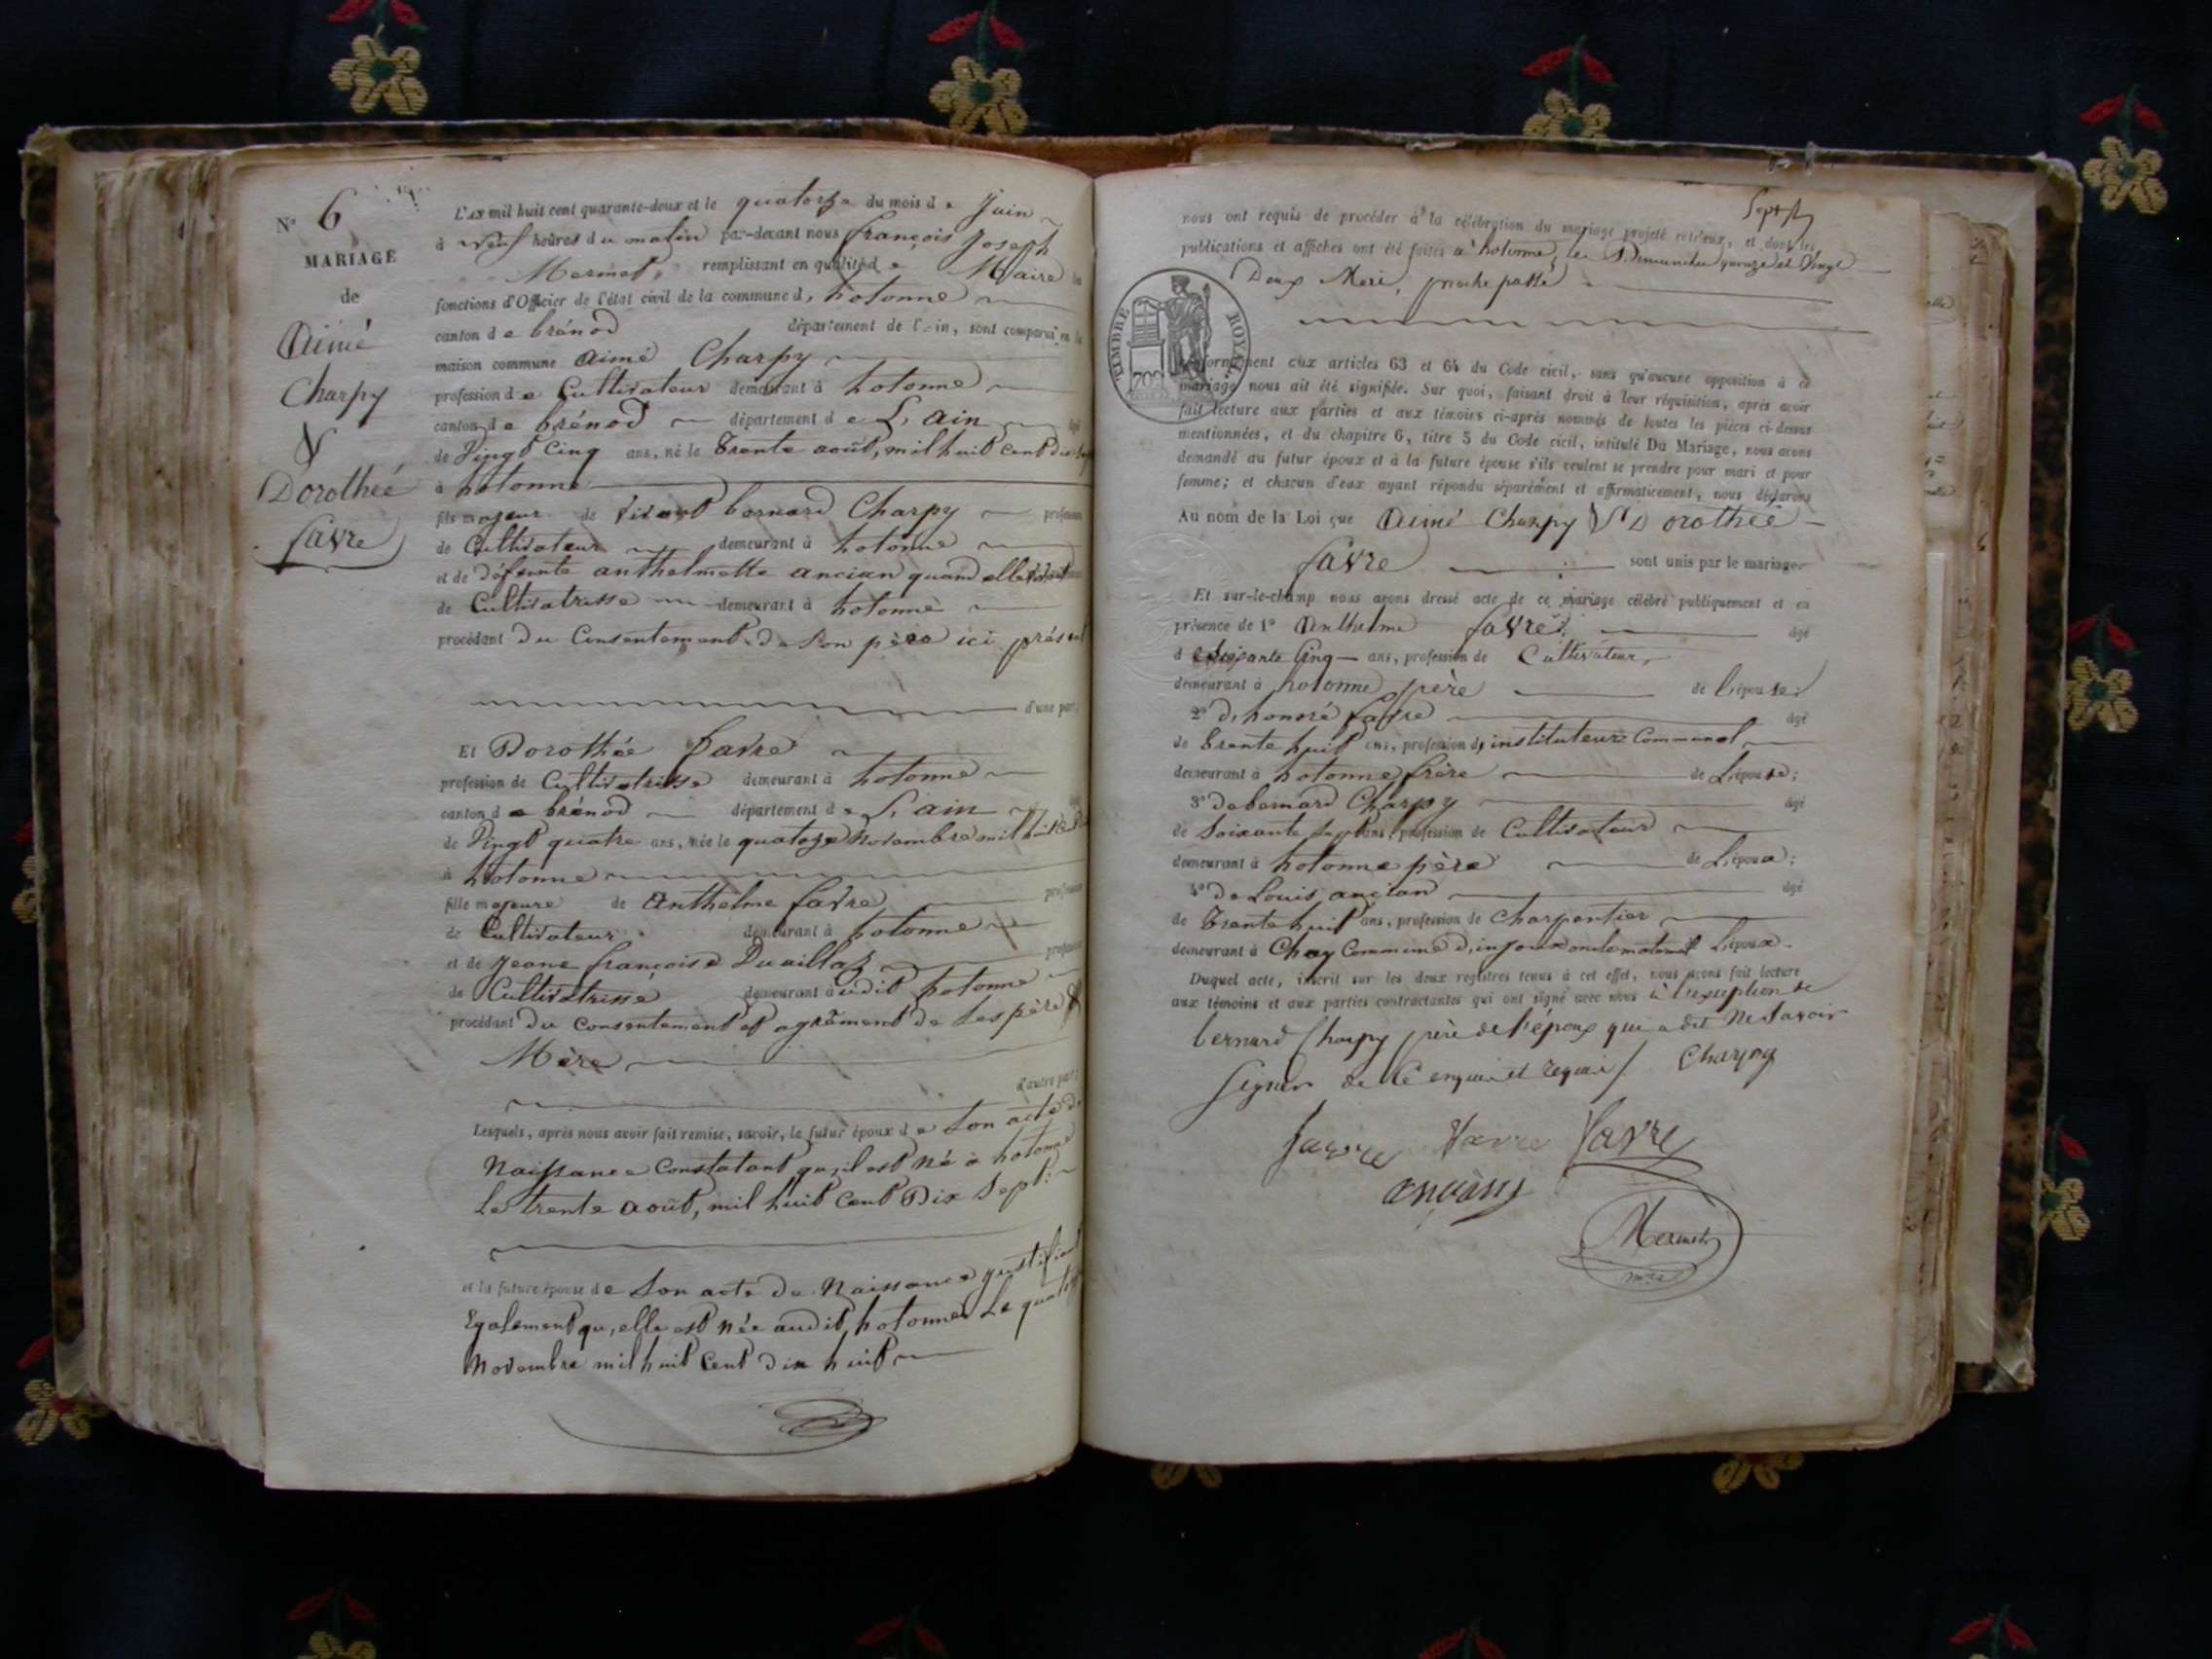 N° 6
MARIAGE
de
Aimé
Charpy
&
Dorothée
favre
L'an mil huit cent quarante-deux et le quatorze du mois de Juin
à neuf heures du matin par-devant nous françois Joseph
Mermet, remplissant en qualité de Maire les
fonctions d'Officier de l'état civil de la commune d, hotonne
canton de brénod département de l'Ain, sont comparus en la
maison commune Aimé Charpy
profession de Cultivateur demeurant à hotonne
canton de brénod département de L, ain âgé
de Vingt Cinq ans, né le trente août, mil huit cent dix sept
à hotonne
fils majeur de vivant bernard Charpy profession
de Cultivateur demeurant à hotonne
et de défunte anthelmette ancian quand elle vivait
de Cultivatrisse demeurant à hotonne
procédant du Consentement de Son père ici présent
d'une part;
Et Dorothée favre
profession de Cultivatrisse demeurant à hotonne
canton de brénod département de L, ain
de Vingt quatre ans, née le quatorze Novembre mil huit Cent
à hotonne
fille majeure de Anthelme favre profession
de Cultivateur demeurant à hotonne
et de Jeane françoise Duaillaz profession
de Cultivatrisse demeurant audit hotonne
procédant du consentement et agrément de ses père &
Mère
d'autre part;
Lesquels, après nous avoir fait remise, savoir, le futur époux de Son acte de
Naissance Constatant qu,il est né à hotonne
Le trente août, mil huit Cent Dix Sept;
et la future épouse de Son acte de Naissance justifiant
Egalement qu, elle est née audit, hotonne Le quatorze
Novembre mil huit Cent dix huit
Sept
nous ont requis de procéder à la célébration du mariage projeté entr'eux, et dont les
publications et affiches ont été faites à hotonne, les Dimanches quinze et Vingt
Deux Mai, proche passé
TIMBRE ROYAL
70c
Conformément aux articles 63 et 64 du Code civil, sans qu'aucune opposition à ce
mariage nous ait été signifiée. Sur quoi, faisant droit à leur réquisition, après avoir
fait lecture aux parties et aux témoins ci-après nommés de toutes les pièces ci-dessus
mentionnées, et du chapitre 6, titre 5 du Code civil, intitulé Du Mariage, nous avons
demandé au futur époux et à la future épouse s'ils veulent se prendre pour mari et pour
femme; et chacun d'eux ayant répondu séparément et affirmativement, nous déclarons
Au nom de la Loi que Aimé Charpy & Dorothée
favre sont unis par le mariage.
Et sur-le-champ nous avons dressé acte de ce mariage célébré publiquement et en
présence de 1° Anthelme favre, âgé
de Soixante Cinq ans, profession de Cultivateur,
demeurant à hotonne père de L'épouse;
2° d, honoré favre âgé
de trente huit ans, profession d, instituteur Communal
demeurant à hotonne frère de L'épouse;
3° de bernard Charpy âgé
de Soixante Sept ans, profession de Cultivateur
demeurant à hotonne père de L'époux;
4° de Louis ancian âgé
de trente huit ans, profession de Charpentier
demeurant à Chay Commune d, injoux oncle maternel L'époux.
Duquel acte, inscrit sur les deux registres tenus à cet effet, nous avons fait lecture
aux témoins et aux parties contractantes qui ont signé avec nous à l'exception de
bernard Charpy père de l'époux qui a dit Ne Savoir
Signer de Ce enquis et requis/. Charpy
favre favre favre
ancian
Mermet